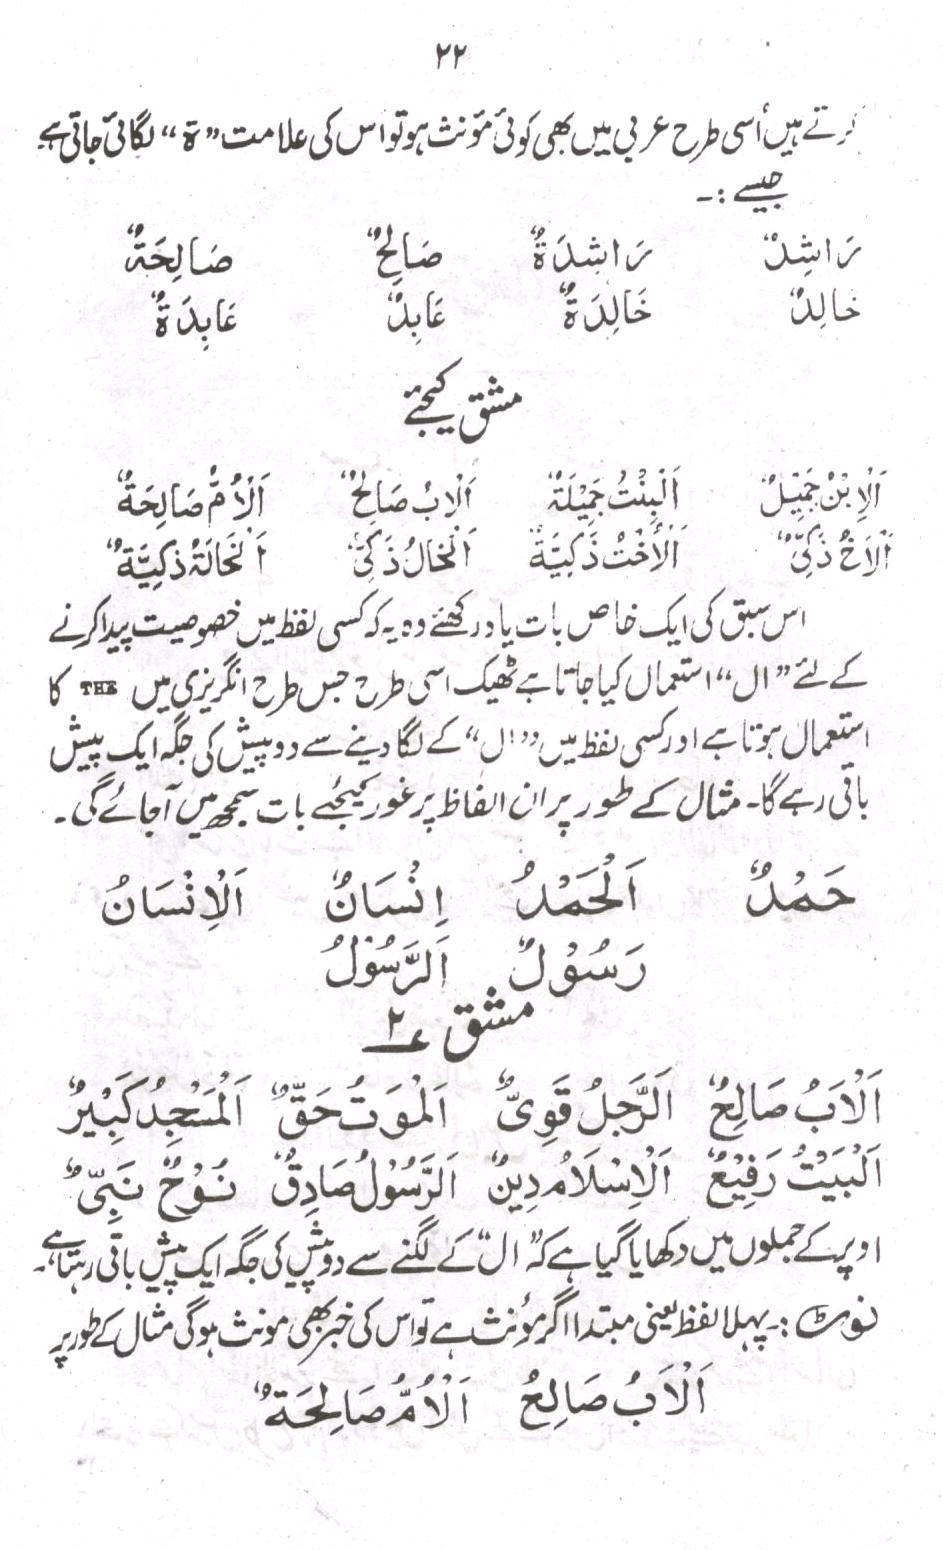 ۲۲
کرتے ہیں اُسی طرح عربی میں بھی کوئی مؤنث ہو تو اس کی علامت ”ۃ“ لگائی جاتی ہے۔
جیسے :۔
رَاشِدٌ رَاشِدَةٌ صَالِحٌ صَالِحَةٌ
خالِدٌ خَالِدَةٌ عَابِدٌ عَابِدَةٌ
مشق کیجئے
اَلْاِبْنُ جَمِیْلٌ اَلْبِنْتُ جَمِیْلَةٌ اَلْابُ صَالِحٌ اَلْاُمُّ صَالِحَةٌ
اَلْاَخُ ذَکِیٌّ اَلْاُخْتُ ذَکِیَّةٌ اَلْخَالُ ذَکِیٌّ اَلْخَالَةُ ذَکِیَّةٌ
اس سبق کی ایک خاص بات یاد رکھئے وہ یہ کہ کسی لفظ میں خصوصیت پیدا کرنے
کے لئے ”ال“ استعمال کیا جاتا ہے ٹھیک اسی طرح جس طرح انگریزی میں THE کا
استعمال ہوتا ہے اور کسی لفظ میں ”ال“ کے لگا دینے سے دو پیش کی جگہ ایک پیش
باقی رہے گا۔ مثال کے طور پر ان الفاظ پر غور کیجئے بات سمجھ میں آجائے گی۔
حَمْدٌ اَلْحَمْدُ اِنْسَانٌ اَلْاِنْسَانُ
رَسُوْلٌ اَلرَّسُوْلُ
مشق ۲؎
اَلْاَبُ صَالِحٌ اَلرَّجُلُ قَوِیٌّ اَلْمَوْتُ حَقٌّ اَلْمَسْجِدُ کَبِیْرٌ
اَلْبَیْتُ رَفِیْعٌ اَلْاِسْلَامُ دِیْنٌ اَلرَّسُوْلُ صَادِقٌ نُوْحٌ نَبِیٌّ
اوپر کے جملوں میں دکھایا گیا ہے کہ ”ال“ کے لگنے سے دو پیش کی جگہ ایک پیش باقی رہتا ہے۔
نوٹ :۔ پہلا لفظ یعنی مبتدا اگر مؤنث ہے تو اس کی خبر بھی مونث ہوگی مثال کے طور پر
اَلْاَبُ صَالِحٌ اَلْاُمُّ صَالِحَةٌ